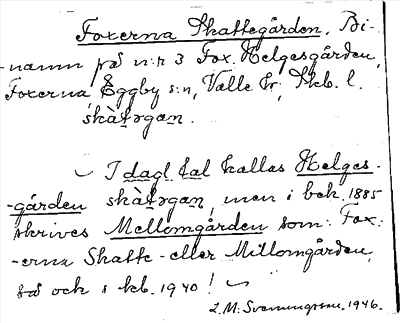 Foxerna Skattegården. Bi-
-namn på n:r 3 Fox. Helgesgården,
Foxerna, Eggby s:n, Valle hr, Skb. l.
skàt̲ǝgan.
I dagl. tal kallas Helges-
-gården skàt̲ǝgan, men i bek. 1885
skrives Mellomgården som: Fox:
-erna Skatte- eller Millomgården,
så och i kb. 1940!
L. M. Svenungsson. 1946.